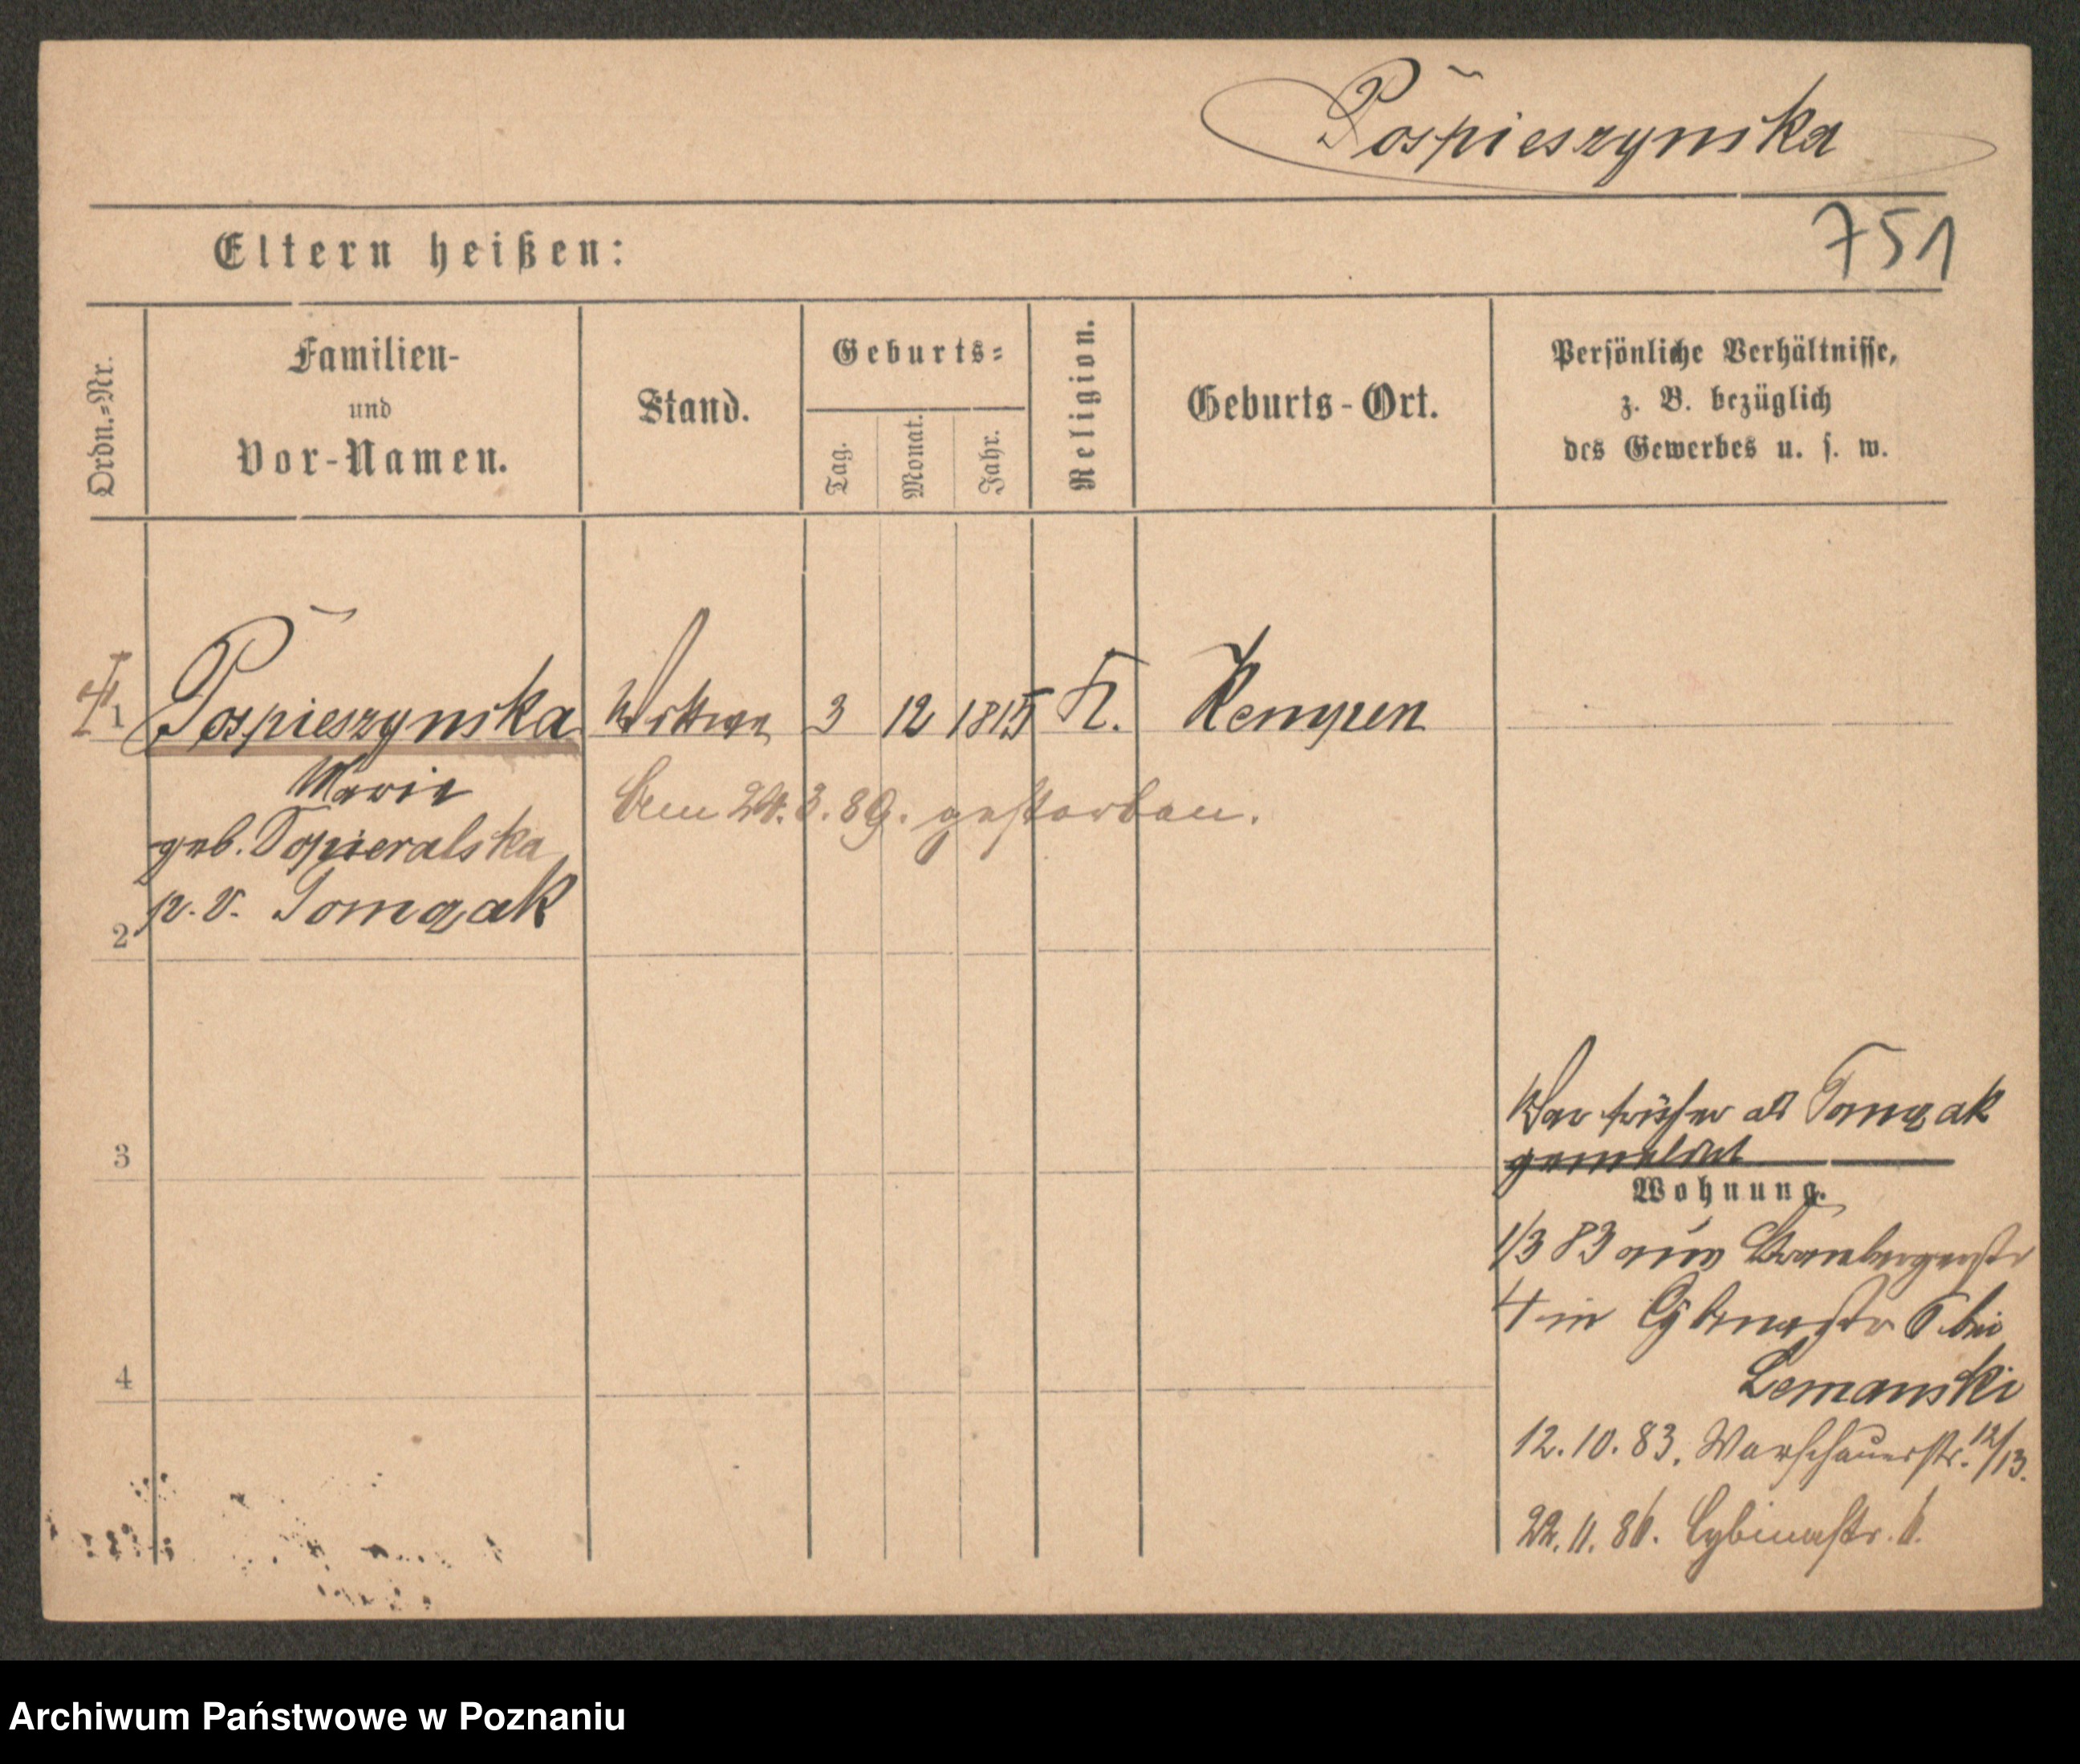 Pospieszynska
751
Eltern heißen:
Ordn.-Nr.
Familien-
und
Vor-Namen.
Stand.
Geburts-
Tag.
Monat.
Jahr.
Religion.
Geburts-Ort.
Persönliche Verhältnisse,
z. B. bezüglich
des Gewerbes u. s. w.
1 Pospieszynska Wittwe 3 12 1815 K. Kempen
Marie
Am 24.3.89. gestorben.
geb. Topieralska
p. v. Tomczak
2
War früher als Tomczak
gemeldet
3
Wohnung.
1/3 83 aus Brombergerstr
4 in Cybinastr 5 bei
Lemanski
4
12.10.83. Warschauerstr. 12/13.
22.11.86. Cybinastr. 6.
Archiwum Państwowe w Poznaniu